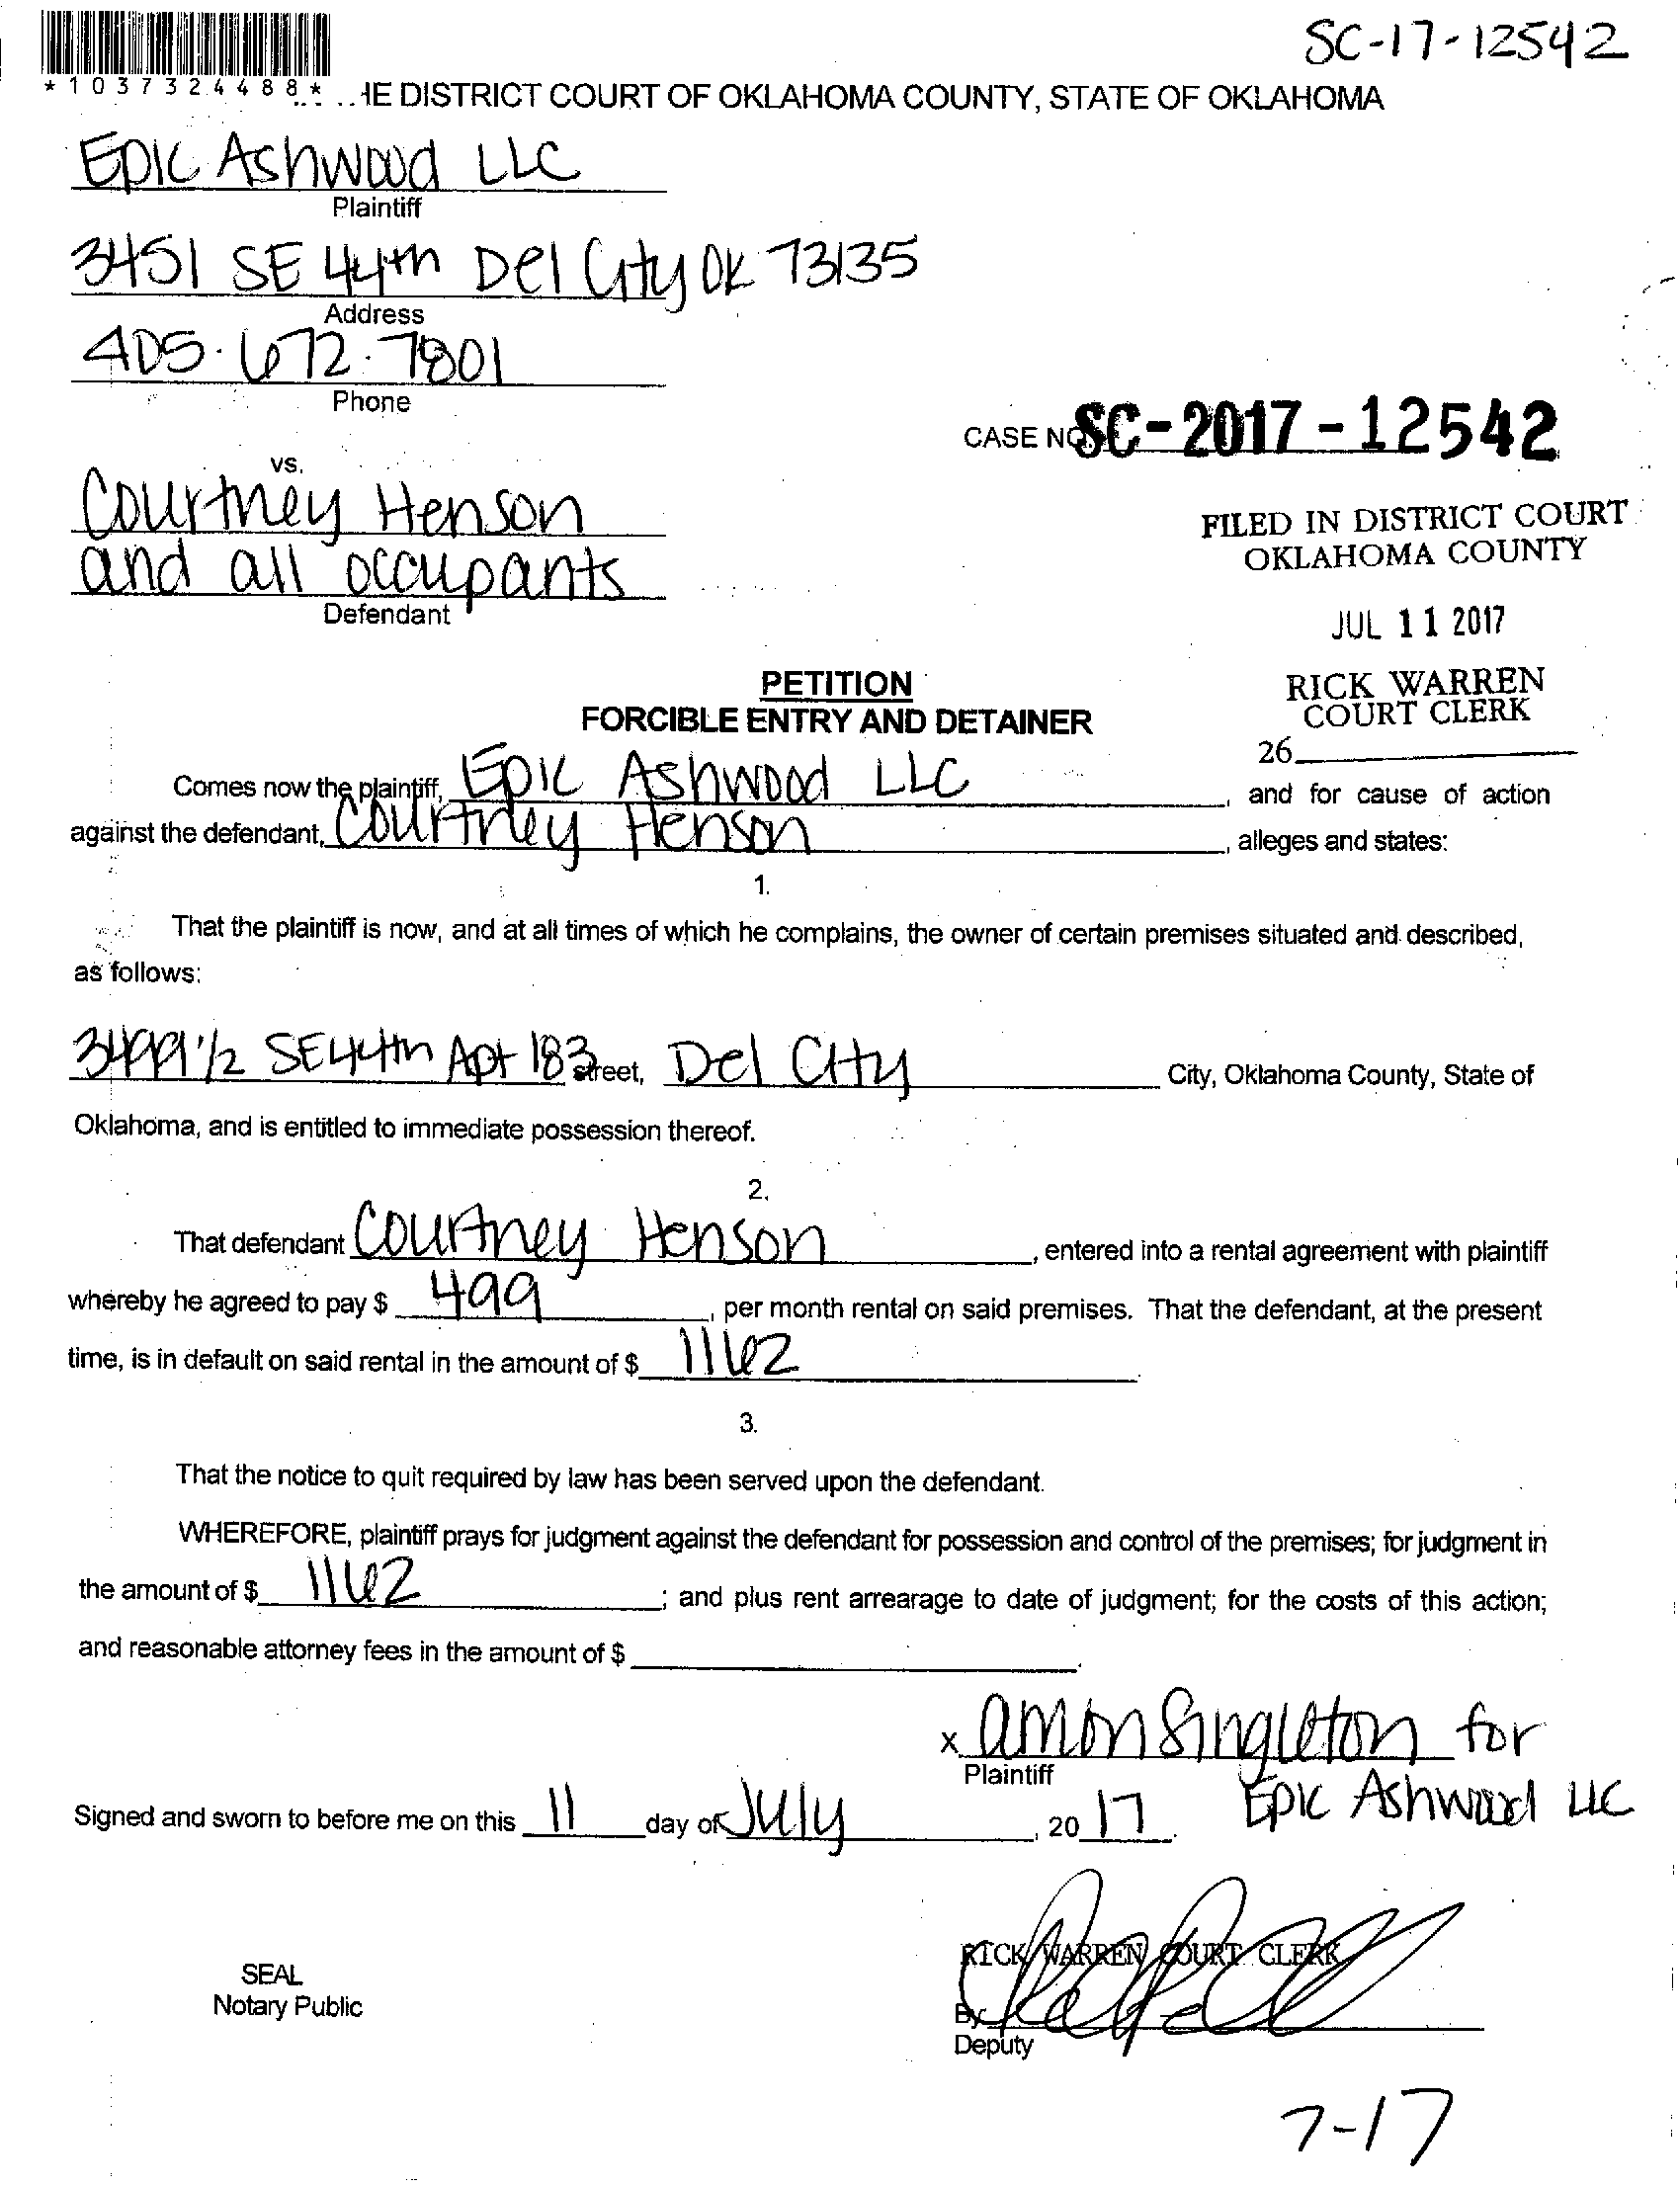 SC-17-12542
*1037324488*
HE DISTRICT COURT OF OKLAHOMA COUNTY, STATE OF OKLAHOMA
Epic Ashwood LLC
Plaintiff
3451 SE 44th Del City OK 73135
Address
405.672.7801
Phone
CASE NO. SC-2017-12542
vs.
Courtney Henson
and all occupants
Defendant
FILED IN DISTRICT COURT
OKLAHOMA COUNTY
JUL 11 2017
RICK WARREN
COURT CLERK
26
PETITION
FORCIBLE ENTRY AND DETAINER
Comes now the plaintiff, Epic Ashwood LLC, and for cause of action
against the defendant, Courtney Henson, alleges and states:
1.
That the plaintiff is now, and at all times of which he complains, the owner of certain premises situated and described,
as follows:
3499 1/2 SE 44th Apt 183 street, Del City City, Oklahoma County, State of
Oklahoma, and is entitled to immediate possession thereof.
2.
That defendant Courtney Henson, entered into a rental agreement with plaintiff
whereby he agreed to pay $ 499, per month rental on said premises. That the defendant, at the present
time, is in default on said rental in the amount of $ 1162.
3.
That the notice to quit required by law has been served upon the defendant.
WHEREFORE, plaintiff prays for judgment against the defendant for possession and control of the premises; for judgment in
the amount of $ 1162; and plus rent arrearage to date of judgment; for the costs of this action;
and reasonable attorney fees in the amount of $ .
x amon Singleton for
Plaintiff
Epic Ashwood LLC
Signed and sworn to before me on this 11 day of July, 20 17.
RICK WARREN COURT CLERK
SEAL
Notary Public
By
Deputy
7-17